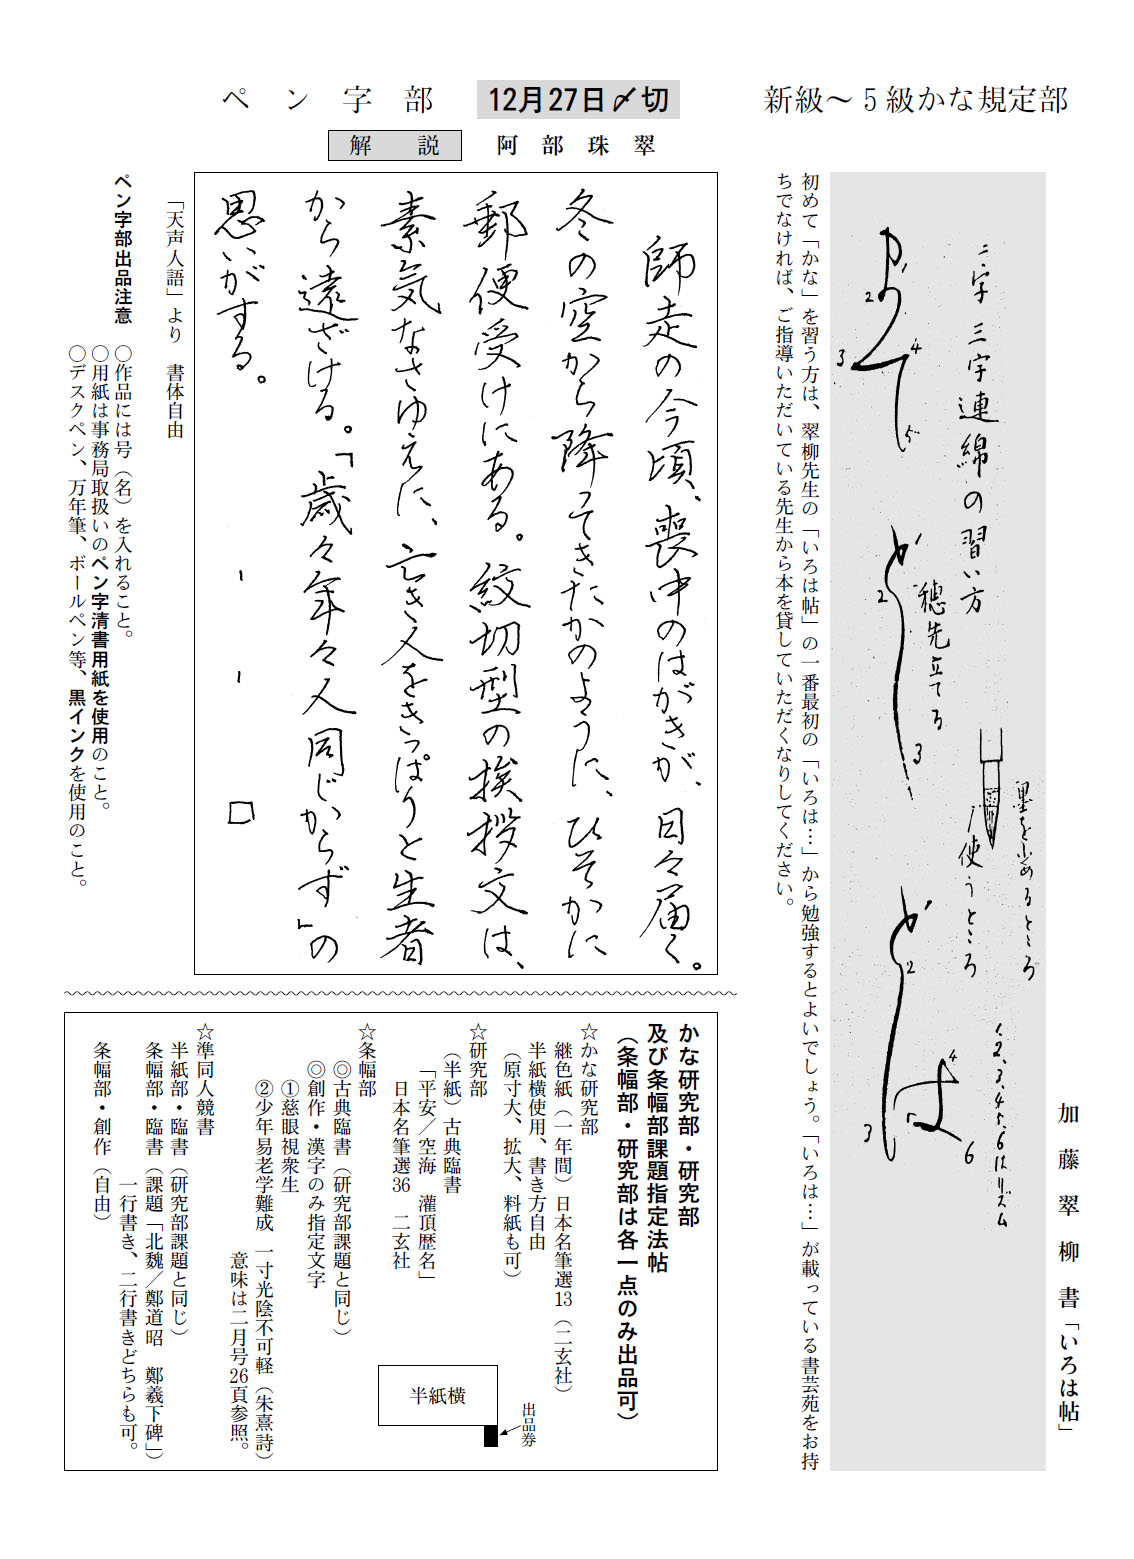 新級〜5級かな規定部
加藤翠柳書「いろは帖」
墨を止めるところ
使うところ
二字 三字連綿の習い方
穂先立てる
1、2、3、4、5、6はリズム
初めて「かな」を習う方は、翠柳先生の「いろは帖」の一番最初の「いろは…」から勉強するとよいでしょう。「いろは…」が載っている書芸苑をお持
ちでなければ、ご指導いただいている先生から本を貸していただくなりしてください。
ペン字部
12月27日〆切
解説
阿部珠翠
師走の今頃、喪中のはがきが、日々届く。
冬の空から降ってきたかのように、ひそかに
郵便受けにある。紋切型の挨拶文は、
素気なさゆえに、亡き人をきっぱりと生者
から遠ざける。「歳々年々人同じからず」の
思いがする。
「天声人語」より 書体自由
ペン字部出品注意 ○作品には号（名）を入れること。
○用紙は事務局取扱いのペン字清書用紙を使用のこと。
○デスクペン、万年筆、ボールペン等、黒インクを使用のこと。
かな研究部・研究部
及び条幅部課題指定法帖
（条幅部・研究部は各一点のみ出品可）
☆かな研究部
継色紙（一年間）日本名筆選13（二玄社）
半紙横使用、書き方自由
（原寸大、拡大、料紙も可）
☆研究部
（半紙）古典臨書
「平安／空海 灌頂歴名」
日本名筆選36 二玄社
☆条幅部
◎古典臨書（研究部課題と同じ）
◎創作・漢字のみ指定文字
①慈眼視衆生
②少年易老学難成 一寸光陰不可軽（朱熹詩）
意味は二月号26頁参照。
☆準同人競書
半紙部・臨書（研究部課題と同じ）
条幅部・臨書（課題「北魏／鄭道昭 鄭羲下碑」）
一行書き、二行書きどちらも可。
条幅部・創作（自由）
半紙横
出品券